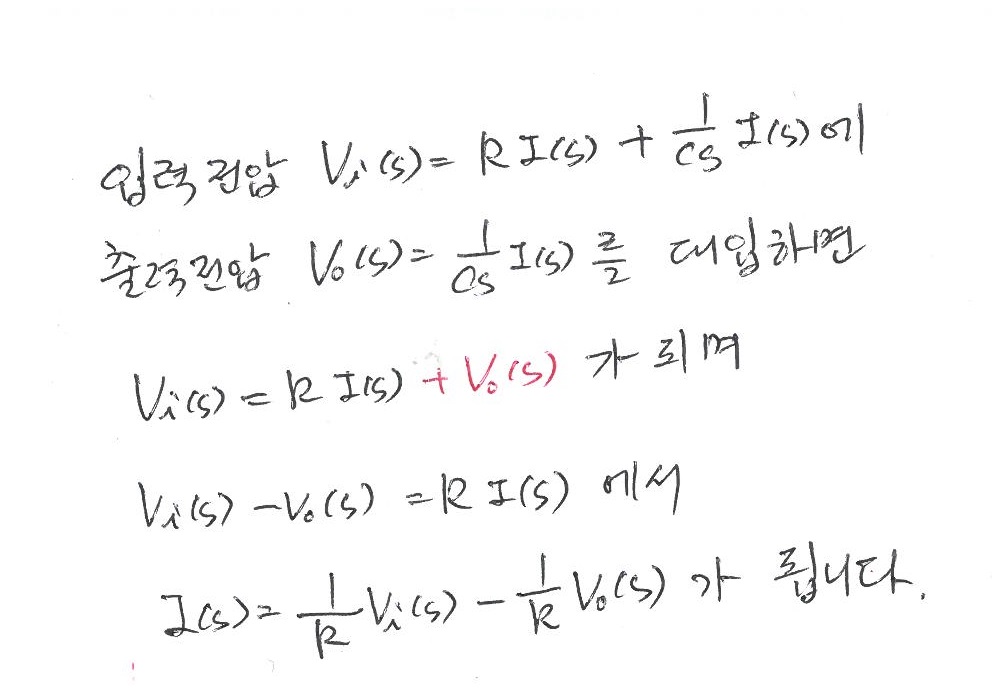 입력전압 Vi(s) = R I(s) + 1/cs I(s)에
출력전압 Vo(s) = 1/Cs I(s)를 대입하면
Vi(s) = R I(s) + Vo(s) 가 되며
Vi(s) - Vo(s) = R I(s) 에서
I(s) = 1/R Vi(s) - 1/R Vo(s) 가 됩니다.